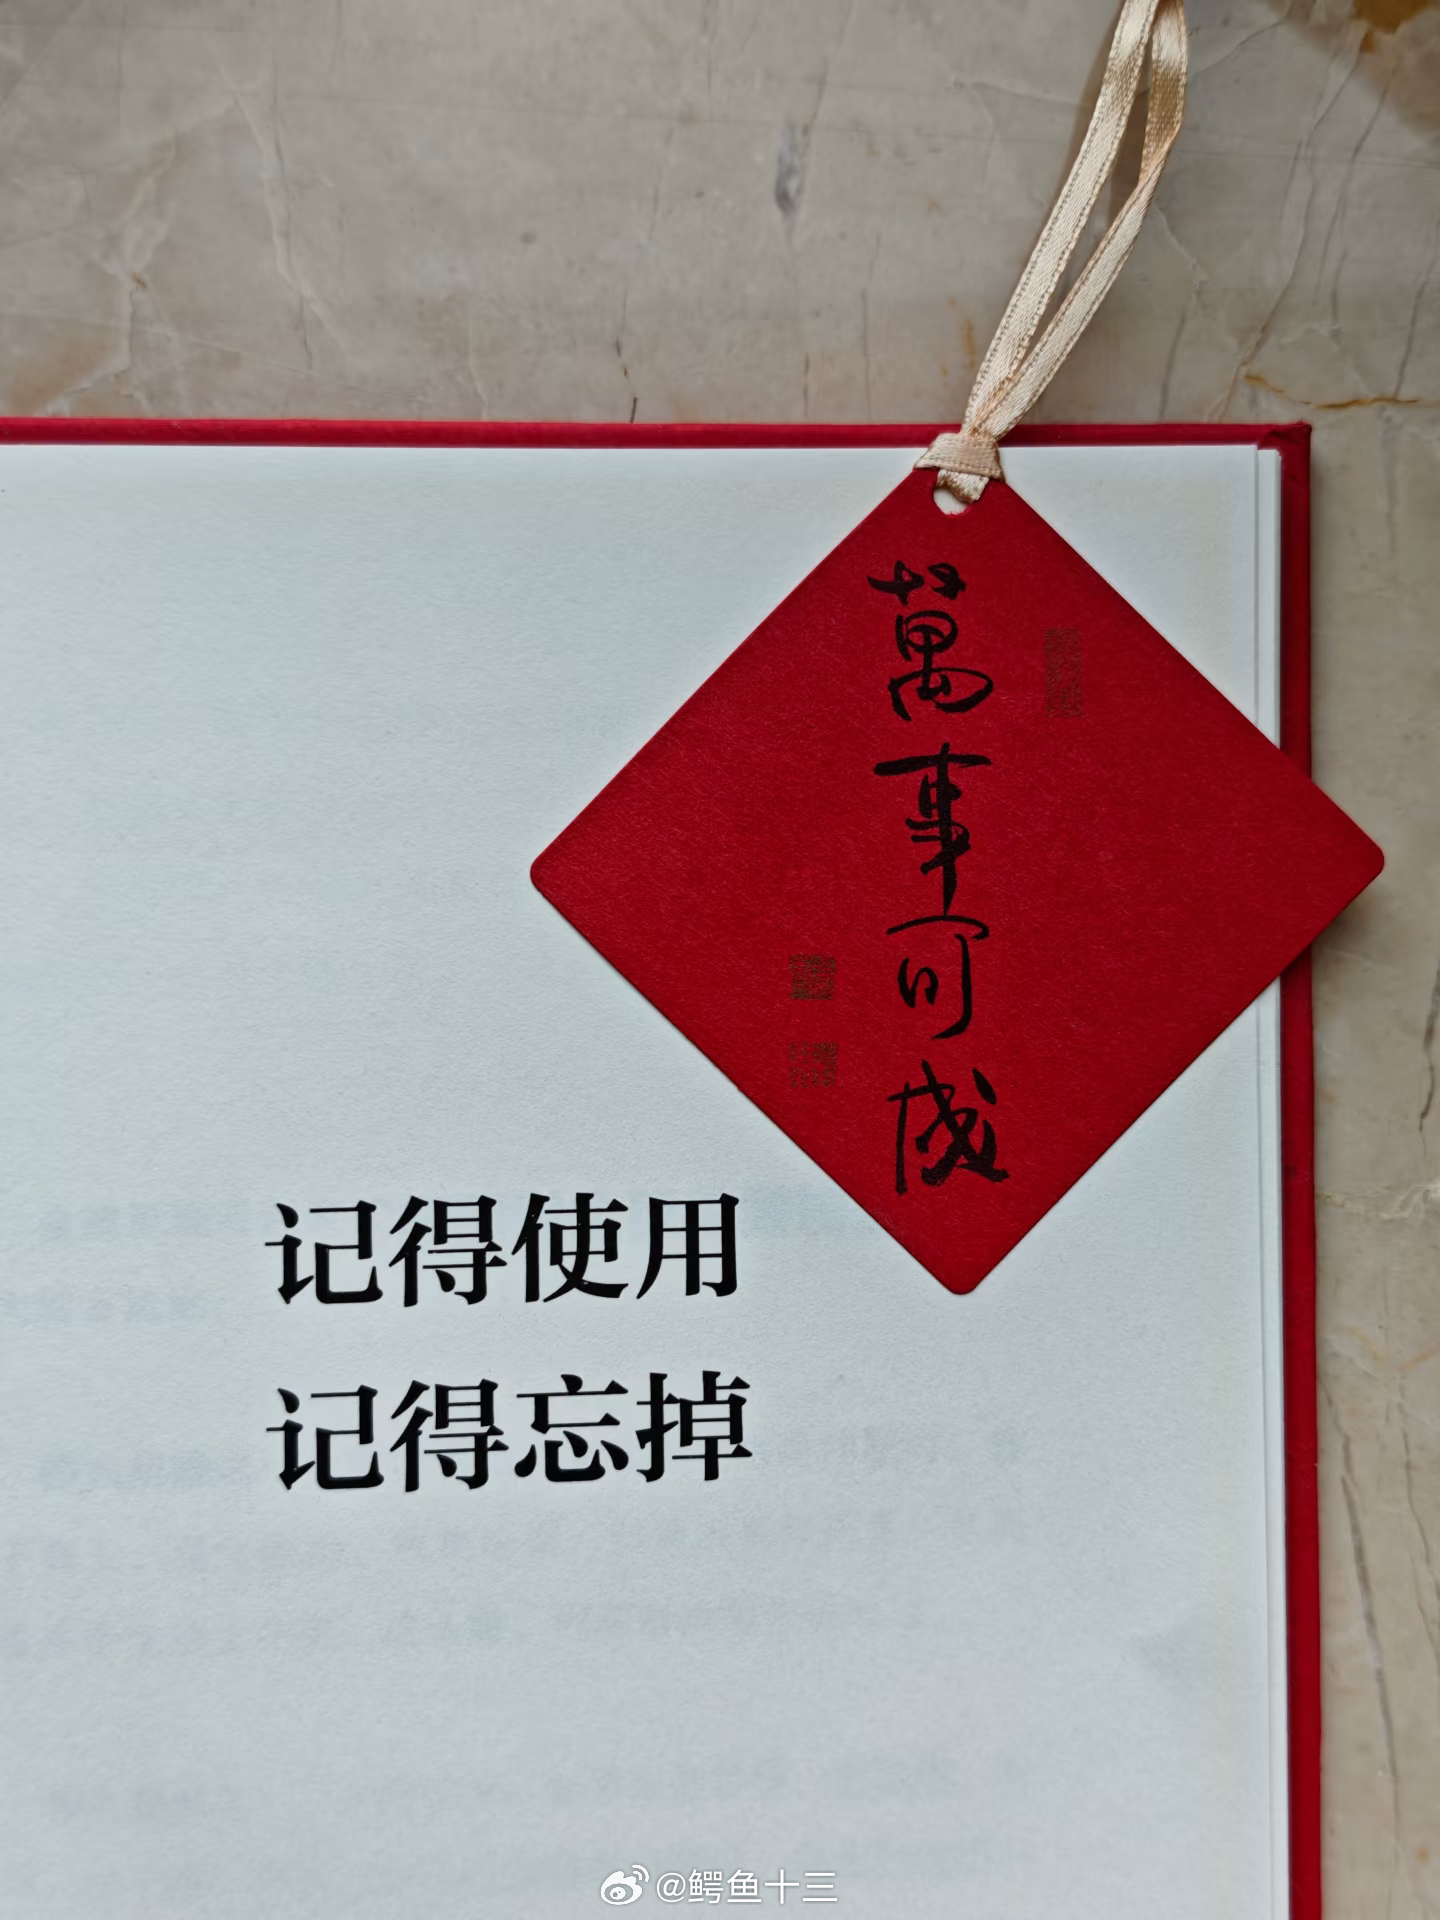 萬事可成
记得使用
记得忘掉
@鳄鱼十三